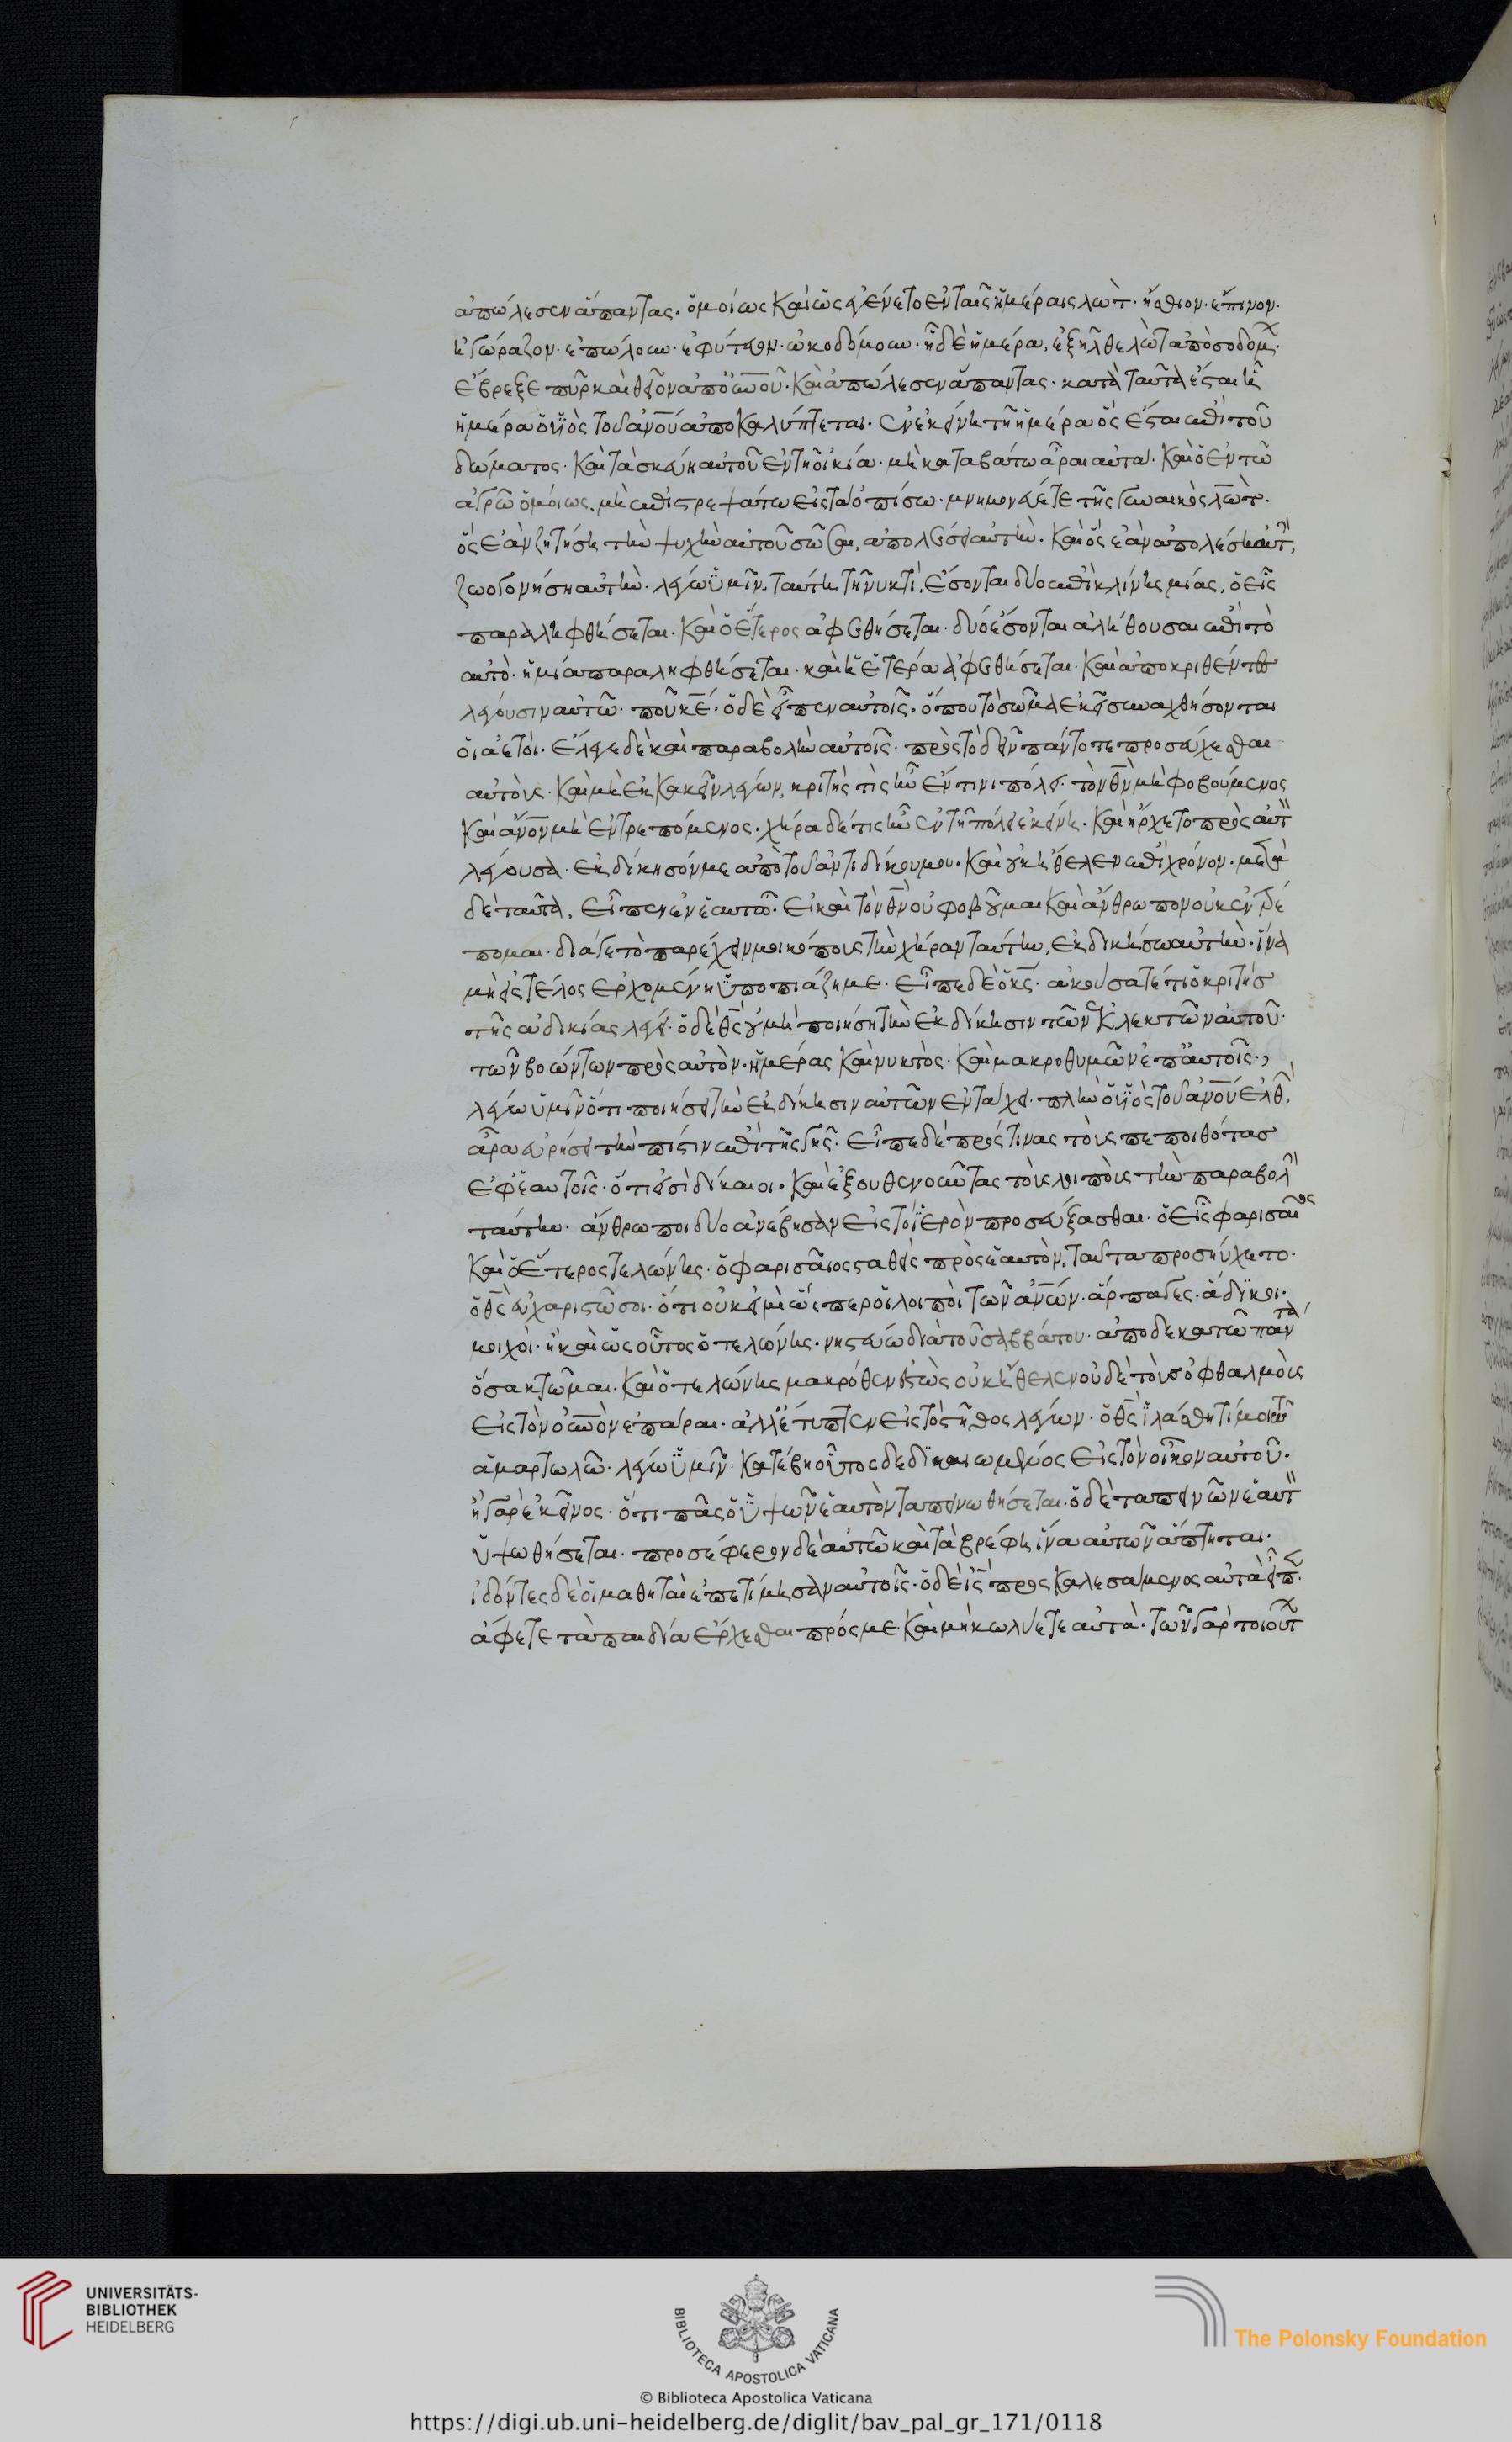 ἀπώλεσεν ἅπαντας· ὁμοίως καὶ ὡς ἐγένετο ἐν ταῖς ἡμέραις λὼτ· ἤσθιον· ἔπινον·
ἠγώραζον· ἐπώλουν· ἐφύτευον· ὠκοδόμουν· ἧ δὲ ἡμέρα, ἐξῆλθε λὼτ ἀπὸ σοδομ·
ἔβρεξε πῦρ καὶ θεῖον ἀπὸ οὐνοῦ· καὶ ἀπώλεσεν ἅπαντας· κατὰ ταῦτα ἔσται ἧ
ἡμέρα ὁ υἱὸς τοῦ ἀνοῦ ἀποκαλύπτεται· ἐν ἐκείνη τῆ ἡμέρα ὃς ἔσται ἐπὶ τοῦ
δώματος· καὶ τὰ σκεύη αὐτοῦ ἐν τῆ οἰκία· μὴ καταβάτω ἆραι αὐτά· καὶ ὁ ἐν τῶ
ἀγρῶ ὁμοίως, μὴ ἐπιστρεψάτω εἰς τὰ ὀπίσω· μνημονεύετε τῆς γυναικὸς λώτ·
ὃς ἐὰν ζητήση τὴν ψυχὴν αὐτοῦ σῶσαι, ἀπολέσει αὐτήν· καὶ ὃς ἐὰν ἀπολέση αὐτ,
ζωογονήση αὐτήν· λέγω ὑμῖν, ταύτη τῆ νυκτί, ἔσονται δύο ἐπὶ κλίνης μιάς, ὁ εἷς
παραληφθήσεται· καὶ ὁ ἕτερος ἀφεθήσεται· δυό ἔσονται ἀλήθουσαι ἐπὶ τὸ
αὐτὸ· ἡ μία παραληφθήσεται· καὶ ἡ ἑτέρα ἀφεθήσεται· καὶ ἀποκριθέντες
λέγουσιν αὐτῶ· ποῦ κε· ὁ δὲ εἶπεν αὐτοῖς· ὅπου τὸ σῶμα ἐκεῖ συναχθήσονται
οἱ ἀετοὶ· ἔλεγε δὲ καὶ παραβολὴν αὐτοῖς· πρὸς τὸ δεῖν πάντοτε προσεύχεσθαι
αὐτοὺς· καὶ μὴ ἐκκακεῖν λέγων, κριτής τὶς ἦν ἔν τινι πόλει· τὸν θν μὴ φοβούμενος
καὶ ἄνον μὴ ἐντρεπόμενος· χήρα δέ τις ἦν ἐν τῆ πόλει ἐκείνη· καὶ ἤρχετο πρὸς αὐτ
λέγουσα· ἐκδίκησόν με ἀπὸ τοῦ ἀντιδίκου μου· καὶ οὐκ ἤθελεν ἐπὶ χρόνον· μετὰ
δὲ ταῦτα, εἶπεν ἐν ἑαυτῶ· εἰ καὶ τὸν θν οὐ φοβοῦμαι καὶ ἄνθρωπον οὐκ ἐντρέ
πομαι· διά γε τὸ παρέχειν μοι κόπους τὴν χήραν ταύτην, ἐκδικήσω αὐτήν· ἵνα
μὴ εἰς τέλος ἐρχομένη ὑποπιάζη με· εἶπε δὲ ὁ κς· ἀκούσατέ τι ὁ κριτὴς
τῆς ἀδικίας λέγει· ὁ δὲ θς οὐ μὴ ποιήση τὴν ἐκδίκησιν τῶν ἐκλεκτῶν αὐτοῦ·
τῶν βοώντων πρὸς αὐτὸν· ἡμέρας καὶ νυκτὸς· καὶ μακροθυμῶν ἐπ' αὐτοῖς·,
λέγω ὑμῖν ὅτι ποιήσει τὴν ἐκδίκησιν αὐτῶν ἐν τάχει· πλὴν ὁ υἱὸς τοῦ ἀνοῦ ἐλθ,
ἆρα εὑρήσει τὴν πίστιν ἐπὶ τῆς γῆς· εἶπε δὲ πρός τινας τοὺς πεποιθότας
ἐφ' ἑαυτοῖς· ὅτι εἰσὶ δίκαιοι· καὶ ἐξουθενοῦντας τοὺς λοιποὺς τὴν παραβολ
ταύτην· ἄνθρωποι δύο ἀνέβησαν εἰς τὸ ἱερὸν προσεύξασθαι· ὁ εἷς φαρισαῖος
καὶ ὁ ἕτερος τελώνης· ὁ φαρισαῖος σταθεὶς πρὸς ἑαυτὸν, ταῦτα προσηύχετο·
ὁ θς εὐχαριστῶ σοι· ὅτι οὐκ εἰμὶ ὥσπερ οἱ λοιποὶ τῶν ἀνων· ἅρπαγες· ἄδικοι·
μοιχοὶ· ἢ καὶ ὡς οὗτος ὁ τελώνης· νηστεύω δὶς τοῦ σαββάτου· ἀποδεκατῶ πάντα
ὅσα κτῶμαι· καὶ ὁ τελώνης μακρόθεν ἑστὼς οὐκ ἤθελεν οὐδὲ τοὺς ὀφθαλμοὺς
εἰς τὸν οὐνὸν ἐπᾶραι· ἀλλ' ἔτυπτεν εἰς τὸ στῆθος λέγων· ὁ θς ἱλάσθητί μοι τῶ
ἁμαρτωλῶ· λέγω ὑμῖν· κατέβη οὗτος δεδικαιωμένος εἰς τὸν οἶκον αὐτοῦ·
ἢ γὰρ ἐκεῖνος· ὅτι πᾶς ὁ ὑψῶν ἑαυτὸν ταπεινωθήσεται· ὁ δὲ ταπεινῶν ἑαυτ
ὑψωθήσεται· προσέφερον δὲ αὐτῶ καὶ τὰ βρέφη ἵνα αὐτῶν ἅπτηται·
ἰδόντες δὲ οἱ μαθηταὶ ἐπετίμησαν αὐτοῖς· ὁ δὲ ις προσκαλεσάμενος αὐτὰ εἶπ·
ἄφετε τὰ παιδία ἔρχεσθαι πρός με καὶ μὴ κωλύετε αὐτὰ· τῶν γὰρ τοιούτ
UNIVERSITÄTS-
BIBLIOTHEK
HEIDELBERG
BIBLIOTECA APOSTOLICA VATICANA
The Polonsky Foundation
© Biblioteca Apostolica Vaticana
https://digi.ub.uni-heidelberg.de/diglit/bav_pal_gr_171/0118